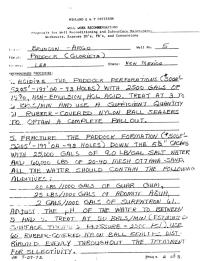 MIDLAND E & P DIVISION
WELL WORK RECOMMENDATION
Proposals for Well Reconditioning and Subsurface Maintenance
Workovers, Squeeze
BRUNSON - ARGO WELL No. 5
PADDOCK (GLORIETA)
LEA STATE: NEW MEXICO
RECOMMENDED PROCEDURE:
1. ACIDIZE THE PADDOCK PERFORATIONS
5205' - 191' OA - 78 HOLES) WITH 2500 GALS OF
15%, NON-EMULSION, HCL ACID. TREAT AT 3
BBLS/MIN AND USE A SUFFICIENT QUANTITY
OF RUBBER-COVERED NYLON BALL SEALERS
TO OBTAIN A COMPLETE BALLOUT.
5. FRACTURE THE PADDOCK FORMATION
5205' - 191' OA - 78 HOLES) DOWN THE CSG
WITH 25,000 GALS OF 9.0 LB/GAL SALT WATER
AND 40,000 LBS OF 20-40 MESH OTTAWA SAND.
ALL THE WATER SHOULD CONTAIN THE FOLLOWING
ADDITIVES:
20 LBS/1000 GALS OF GUAR GUM,
25 LBS/1000 GALS OF ADOMITE AQUA,
2 GALS/1000 GALS OF SURFACTANT
ADJUST THE PH OF THE WATER TO BETWEEN
AND TREAT AT 50 BBLS/MIN
SURFACE PRESSURE = 2500 PSI). USE
60 RUBBER-COVERED NYLON BALL SEALERS DIST-
RIBUTED EVENLY THROUGHOUT THE TREATMENT
FOR SELECTIVITY.